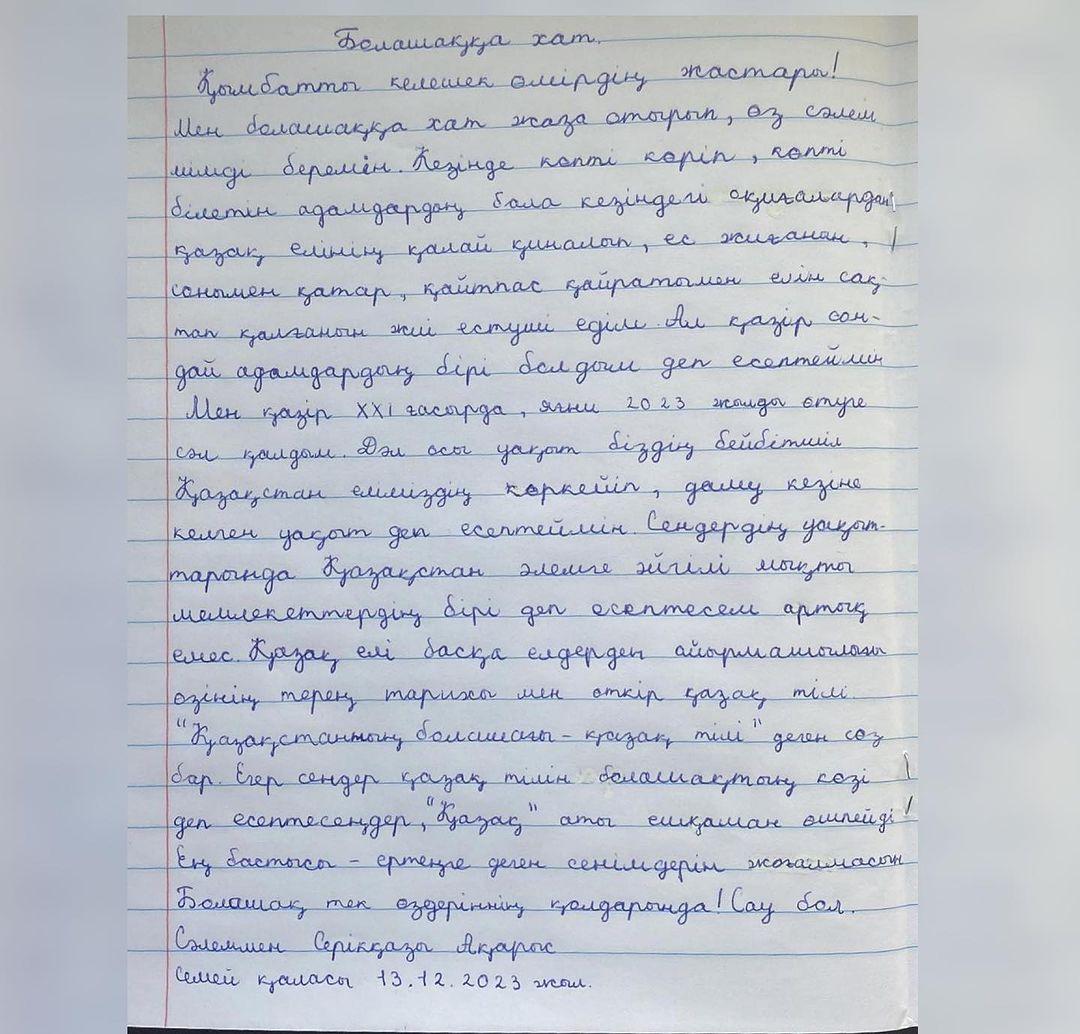 Болашаққа хат.
Қымбатты келешек өмірдің жастары!
Мен болашаққа хат жаза отырып, өз сәлем
мімді беремін. Кезінде көпті көріп, көпті
білетін адамдардың бала кезіндегі оқиғалардан
қазақ елінің қалай қиналып, ес жиғанын,
сонымен қатар, қайтпас қайратымен елін сақ-
тап қалғанын жиі естуші едім. Ал қазір сон-
дай адамдардың бірі болдым деп есептеймін
Мен қазір XXI ғасырда, яғни 2023 жылды өтуге
сәл қалдым. Дәл осы уақыт біздің бейбітшіл
Қазақстан еліміздің көркейіп, даму кезіне
келген уақыт деп есептеймін. Сендердің уақыт-
тарында Қазақстан әлемге әйгілі мықты
мемлекеттердің бірі деп есептесем артық
емес. Қазақ елі басқа елдерден айырмашылығы
өзінің терең тарихы мен өткір қазақ тілі.
"Қазақстанның болашағы - қазақ тілі" деген сөз
бар. Егер сендер қазақ тілін болашақтың көзі
деп есептесеңдер, "Қазақ" аты ешқашан өшпейді
Ең бастысы - ертеңге деген сенімдерің жоғалмасын
Болашақ тек өздеріннің қолдарында! Сау бол.
Сәлеммен Серікқазы Ақарыс
Семей қаласы 13.12.2023 жыл.